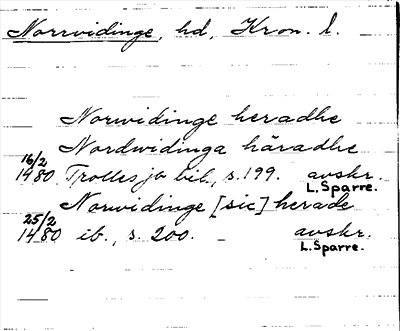 Norrvidinge, hd, Kron. l.
Norwidinge heradhe
Nordwidinga häradhe
16/2
1480. Trollesjö bil., s. 199. avskr.
L. Sparre.
Norvidinge [sic] herade
25/2
1480 ib., s. 200. avskr.
L. Sparre.